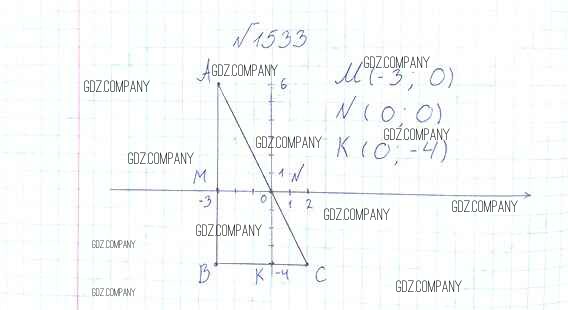 №1533
A
6
M(-3; 0)
N(0; 0)
K(0; -4)
M
1
N
-3
0
1
2
B
K
-4
C
GDZ.COMPANY
GDZ.COMPANY
GDZ.COMPANY
GDZ.COMPANY
GDZ.COMPANY
GDZ.COMPANY
GDZ.COMPANY
GDZ.COMPANY
GDZ.COMPANY
GDZ.COMPANY
GDZ.COMPANY
GDZ.COMPANY